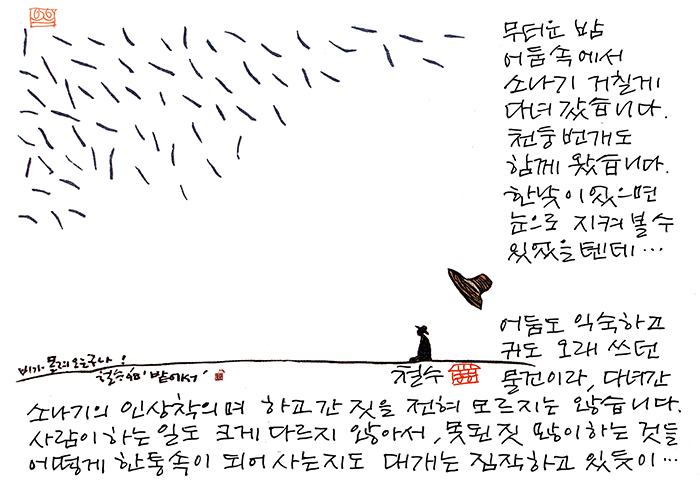 무더운 밤
어둠속에서
소나기 거칠게
다녀 갔습니다.
천둥번개도
함께 왔습니다.
한낮이었으면
눈으로 지켜볼수
있었을텐데…
어둠도 익숙하고
귀도 오래 쓰던
물건이라, 다녀간
소나기의 인상착의며 하고간 짓을 전혀 모르지는 않습니다.
사람이하는일도 크게 다르지 않아서, 못된짓 많이하는 것들
어떻게 한통속이 되어사는지도 대개는 짐작하고 있듯이…
비가 몰려오는구나!
철수 '밭에서'
철수